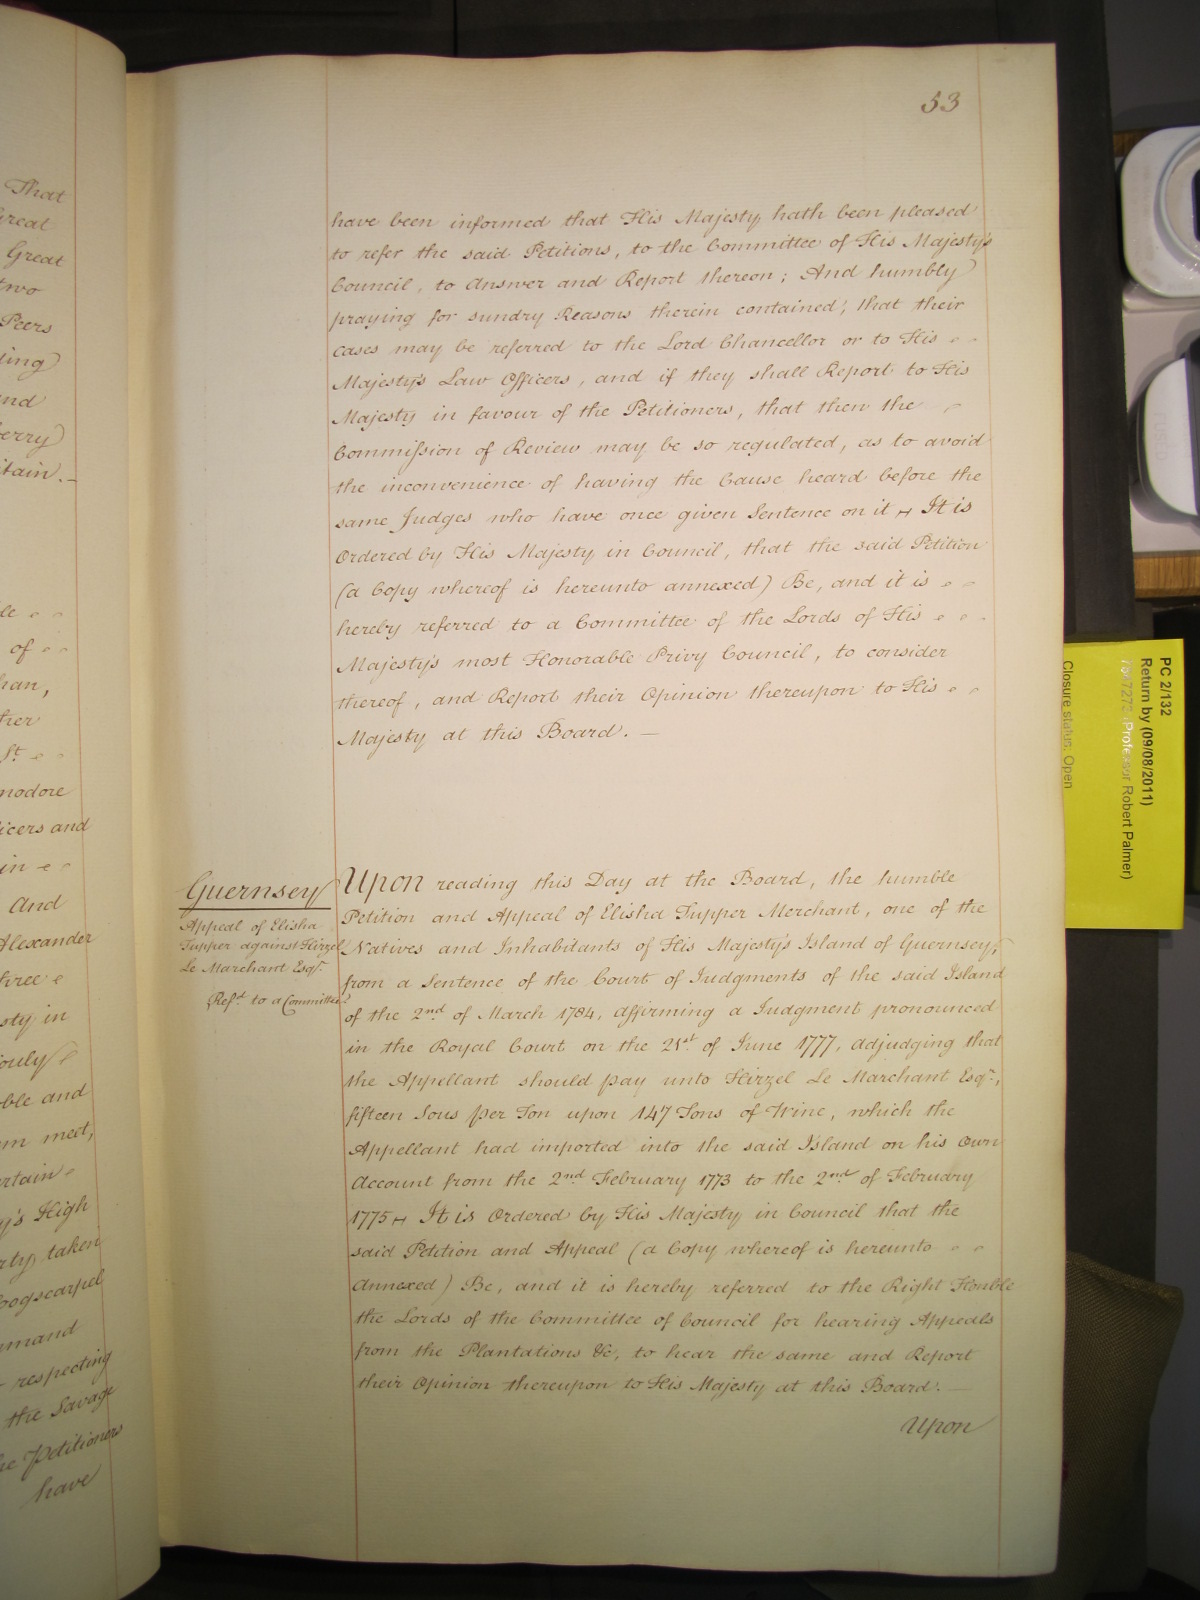 That
Great
Great
two
Peers
ding
and
berry
itain.
of
han,
ther
St.
modore
icers and
in
And
Alexander
three
sty in
iously
ble and
em meet,
ertain
y's High
rty, taken
oogscarpel
mmand
respecting
the Savage
he Petitioners
have
53
have been informed that His Majesty hath been pleased
to refer the said Petitions, to the Committee of His Majesty's
Council, to Answer and Report thereon; And humbly
praying for sundry Reasons therein contained; that their
cases may be referred to the Lord Chancellor or to His
Majesty's Law Officers, and if they shall Report to His
Majesty in favour of the Petitioners, that then the
Commission of Review may be so regulated, as to avoid
the inconvenience of having the Cause heard before the
same Judges who have once given Sentence on it It is
Ordered by His Majesty in Council, that the said Petition
(a Copy whereof is hereunto annexed) Be, and it is
hereby referred to a Committee of the Lords of His
Majesty's most Honorable Privy Council, to consider
thereof, and Report their Opinion thereupon to His
Majesty at this Board. —
Guernsey
Appeal of Elisha
Tupper against Hirzel
Le Marchant Esqr.
Refd. to a Committee
Upon reading this Day at the Board, the humble
Petition and Appeal of Elisha Tupper Merchant, one of the
Natives and Inhabitants of His Majesty's Island of Guernsey,
from a Sentence of the Court of Judgments of the said Island
of the 2nd of March 1784, affirming a Judgment pronounced
in the Royal Court on the 21st of June 1777, adjudging that
the Appellant should pay unto Hirzel Le Marchant Esqr.,
fifteen Sous per Ton upon 147 Tons of Wine, which the
Appellant had imported into the said Island on his own
Account from the 2nd February 1773 to the 2nd of February
1775 It is Ordered by His Majesty in Council that the
said Petition and Appeal (a Copy whereof is hereunto
annexed) Be, and it is hereby referred to the Right Honble
the Lords of the Committee of Council for hearing Appeals
from the Plantations &c, to hear the same and Report
their Opinion thereupon to His Majesty at this Board. —
Upon
PC 2/132
Return by (09/08/2011)
(Professor Robert Palmer)
Closure status: Open